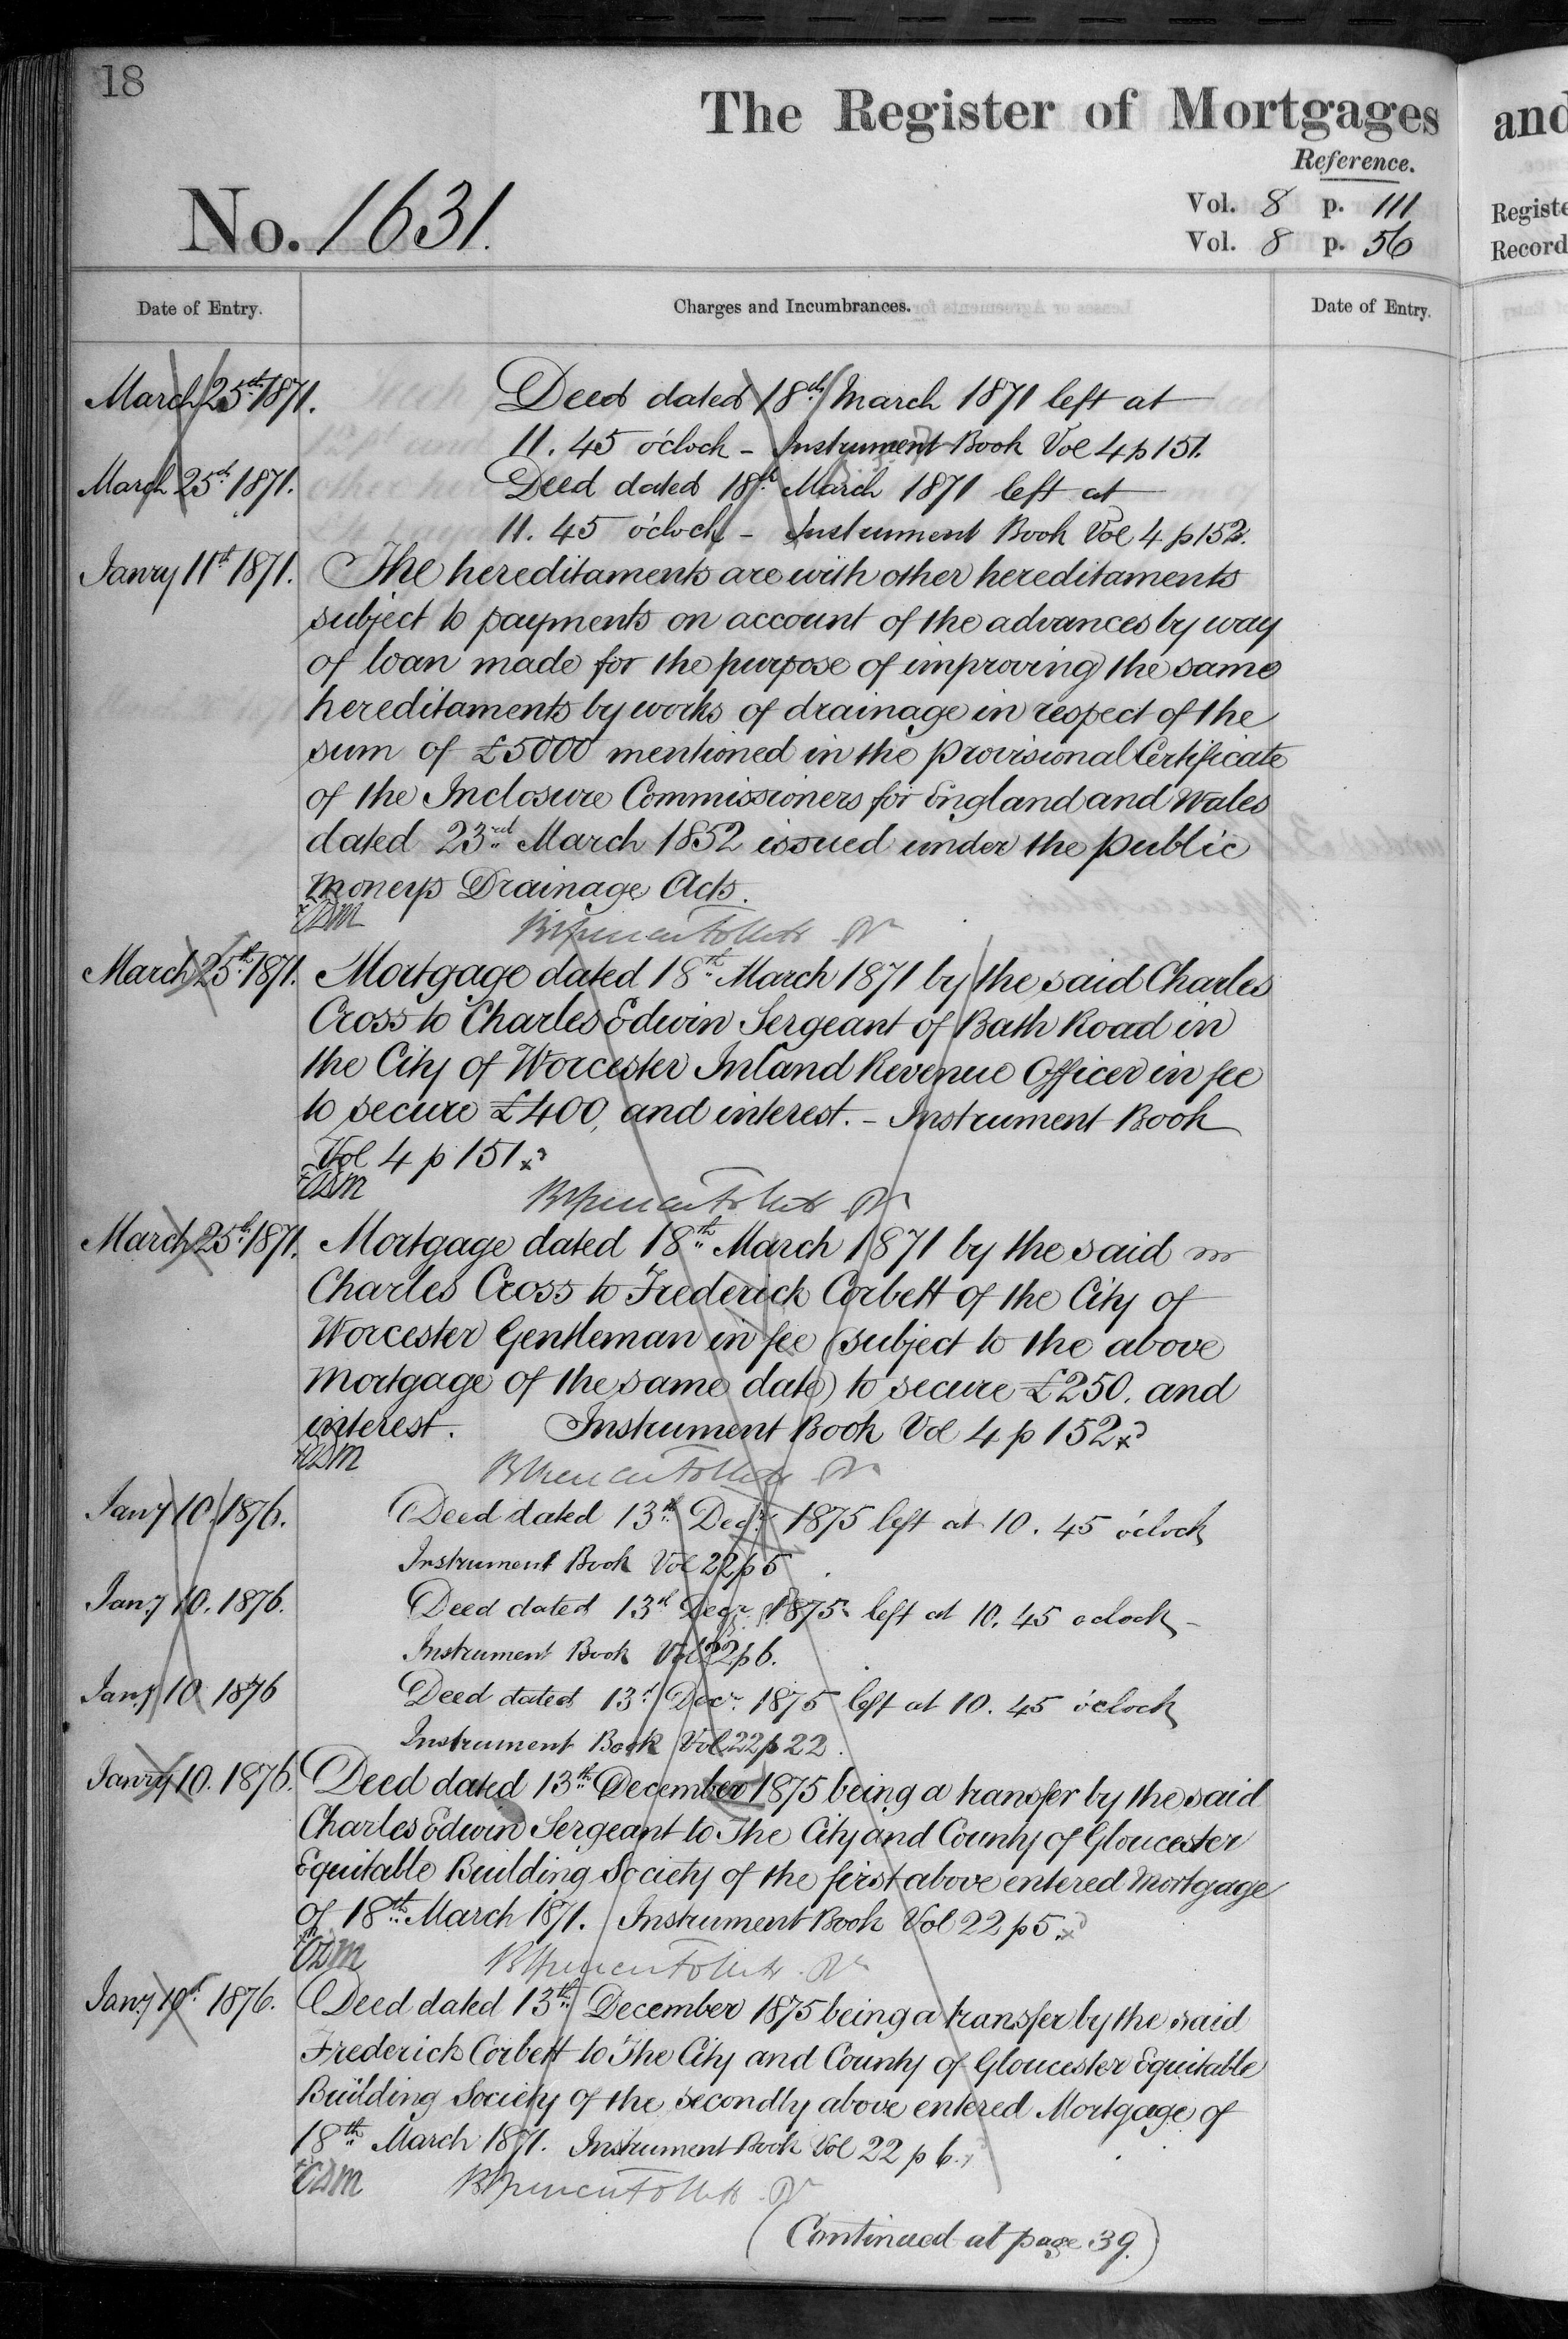 18
The Register of Mortgages
and
Reference.
No. 1631.
Vol. 8 p. 111
Vol. 8 p. 56
Registe
Record
Date of Entry.
Charges and Incumbrances.
Date of Entry.
March 25th 1871. Deed dated 18th March 1871 left at
11. 45 o'clock - Instrument Book Vol 4 p 151.
March 25th 1871. Deed dated 18th March 1871 left at
11. 45 o'clock - Instrument Book Vol 4 p 152.
Janry 11th 1871. The hereditaments are with other hereditaments
subject to payments on account of the advances by way
of loan made for the purpose of improving the same
hereditaments by works of drainage in respect of the
sum of £5000 mentioned in the provisional Certificate
of the Inclosure Commissioners for England and Wales
dated 23rd March 1852 issued under the public
moneys Drainage Acts.
March 25th 1871. Mortgage dated 18th March 1871 by the said Charles
Cross to Charles Edwin Sergeant of Bath Road in
the City of Worcester Inland Revenue Officer in fee
to secure £400, and interest. - Instrument Book
Vol 4 p 151
March 25th 1871. Mortgage dated 18th March 1871 by the said
Charles Cross to Frederick Corbett of the City of
Worcester Gentleman in fee (subject to the above
mortgage of the same date) to secure £250. and
interest. Instrument Book Vol 4 p 152
Jany 10. 1876. Deed dated 13th Decr 1875 left at 10. 45 o'clock
Instrument Book Vol 22 p 5
Jany 10. 1876. Deed dated 13th Decr 1875 left at 10. 45 oclock -
Instrument Book Vol 22 p 6.
Jany 10 1876 Deed dated 13th Decr 1875 left at 10. 45 o'clock
Instrument Book Vol 22 p 22.
Janry 10. 1876. Deed dated 13th December 1875 being a transfer by the said
Charles Edwin Sergeant to The City and County of Gloucester
Equitable Building Society of the first above entered Mortgage
of 18th March 1871. Instrument Book Vol 22 p 5.
Jany 10th 1876. Deed dated 13th December 1875 being a transfer by the said
Frederick Corbett to The City and County of Gloucester Equitable
Building Society of the secondly above entered Mortgage of
18th March 1871. Instrument Book Vol 22 p 6.
(Continued at page 39.)